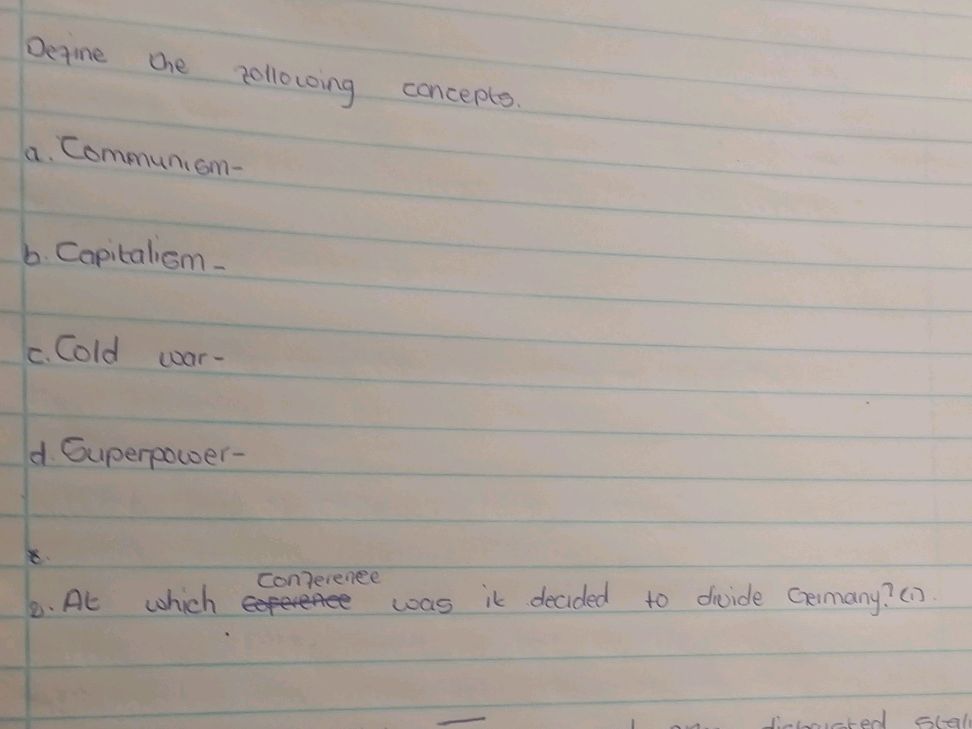 Define the following concepts.
a. Communism-
b. Capitalism-
c. Cold war-
d. Superpower-
conference
2. At which coperence was it decided to divide Germany? (1).